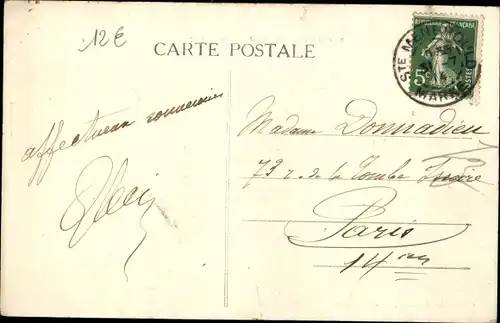 12€
CARTE POSTALE
RÉPUBLIQUE FRANÇAISE
5c
POSTES
STE MENEHOULD
MARNE
affectueux souvenirs
Madame Donnadieu
73 r. de la Tombe Issoire
Paris
14ème